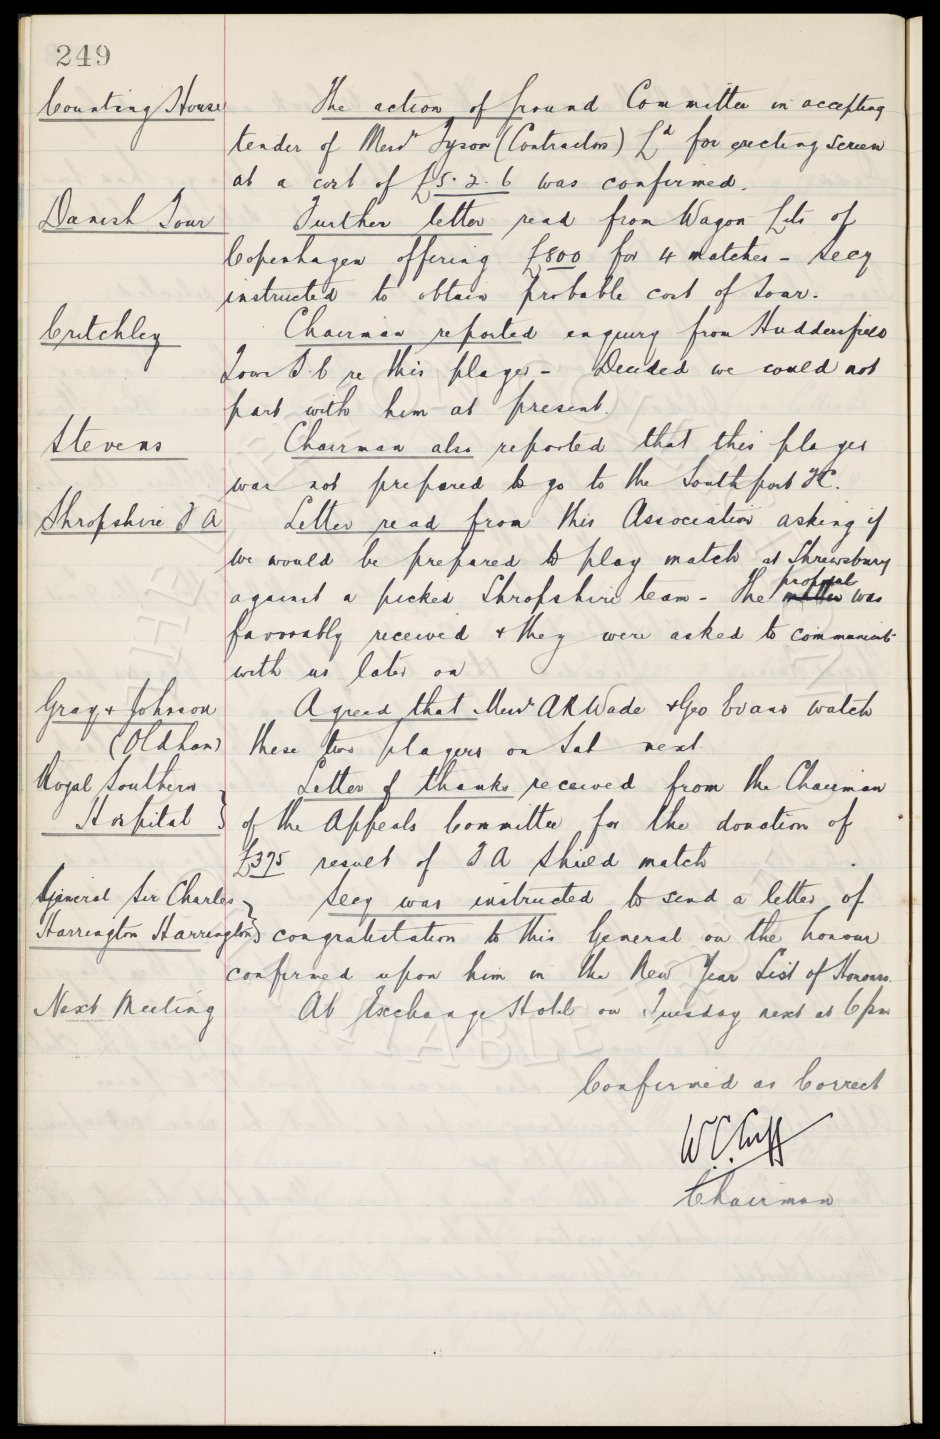 249
Counting House The action of Ground Committee in accepting
tender of Messrs Tyson (Contractors) Ld for erecting screen
at a cost of £5. 2. 6 was confirmed.
Danish Tour Further letter read from Wagon Lits of
Copenhagen offering £800 for 4 matches - Secy
instructed to obtain probable cost of Tour.
Critchley Chairman reported enquiry from Huddersfield
Town F.C re this player - Decided we could not
part with him at present.
Stevens Chairman also reported that this player
was not prepared to go to the Southport FC.
Shropshire F A Letter read from this Association asking if
we would be prepared to play match at Shrewsbury
against a picked Shropshire team - The matter proposal was
favorably received & they were asked to communicate
with us later on
Gray & Johnson Agreed that Messrs AR Wade & Geo Evans watch
(Oldham) these two players on Sat next.
Royal Southern Letter of thanks received from the Chairman
Hospital of the Appeals Committee for the donation of
£375 result of F A Shield match
General Sir Charles Secy was instructed to send a letter of
Harrington Harrington congratulation to this General on the honour
confirmed upon him in the New Year List of Honours.
Next Meeting At Exchange Hotel on Tuesday next at 6pm
Confirmed as Correct
W.C. Cuff
Chairman